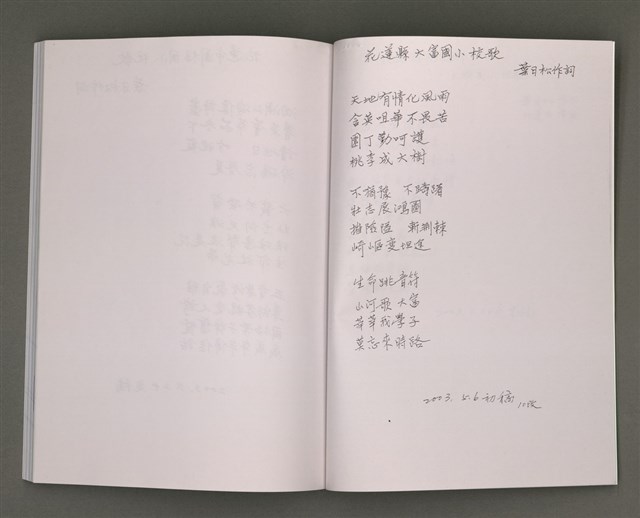 花蓮縣大富國小校歌
葉日松作詞
天地有情化風雨
含英咀華不畏苦
園丁勤呵護
桃李成大樹
不猶豫 不踌躇
壯志展鴻圖
摧險隘 斬荆棘
崎嶇變坦途
生命跳音符
山河歌大富
莘莘我學子
莫忘來時路
2003. 5.6初稿